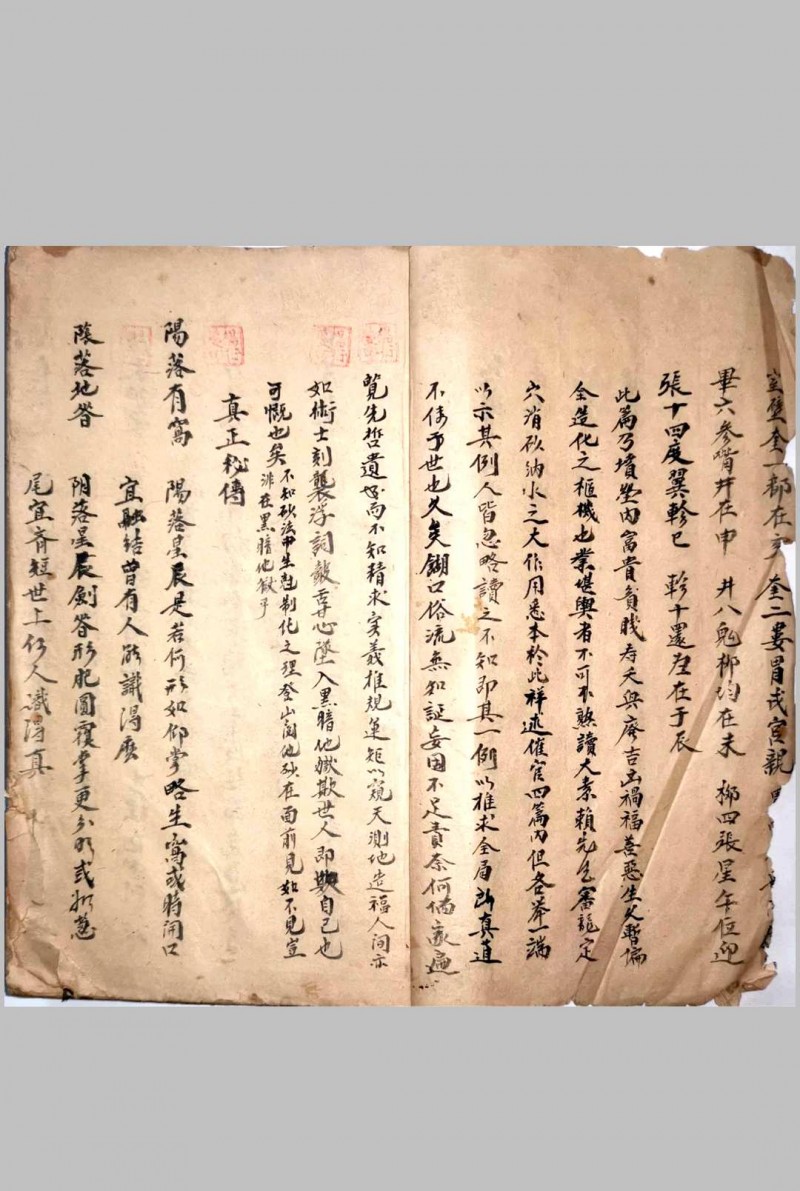 室壁奎一都在亥 奎二婁胃戌宫親
畢六參嘴井在申 井八鬼柳均在未 柳四張星午位迎
張十四度翼軫巳 軫十還在于辰
此篇乃墳塋内富貴貧賤寿夭興廢吉凶禍福善惡生人暫偏
全造化之樞機也業堪輿者不可不熟讀大素賴先生審龍定
穴消砂納水之大作用悉本於此祥述催官四篇内但各举一端
以示其例人皆忽略讀之不知即其一例以推求全局所真道
不傳于世也久矣餬口俗流無知証妄固不足責奈何儒家遍
覽先哲遺書而不知精求实義推規運矩以窺天測地造福人间亦
如術士刻襲浮詞敢辜心墜入黑暗他獄欺世人即欺自己也
可慨也矣 不知砂法中生尅制化之理登山闽他砂在面前見如不見豈
非在黑暗他獄乎
真正秘傳
陽落有窩 陽落星辰是若何形如仰掌略生窩或時開口
宜融结曾有人能識得麽
陰落地答 阴落星辰劍答形肥圓覆掌更分明或
尾宜齊短世上何人識得真